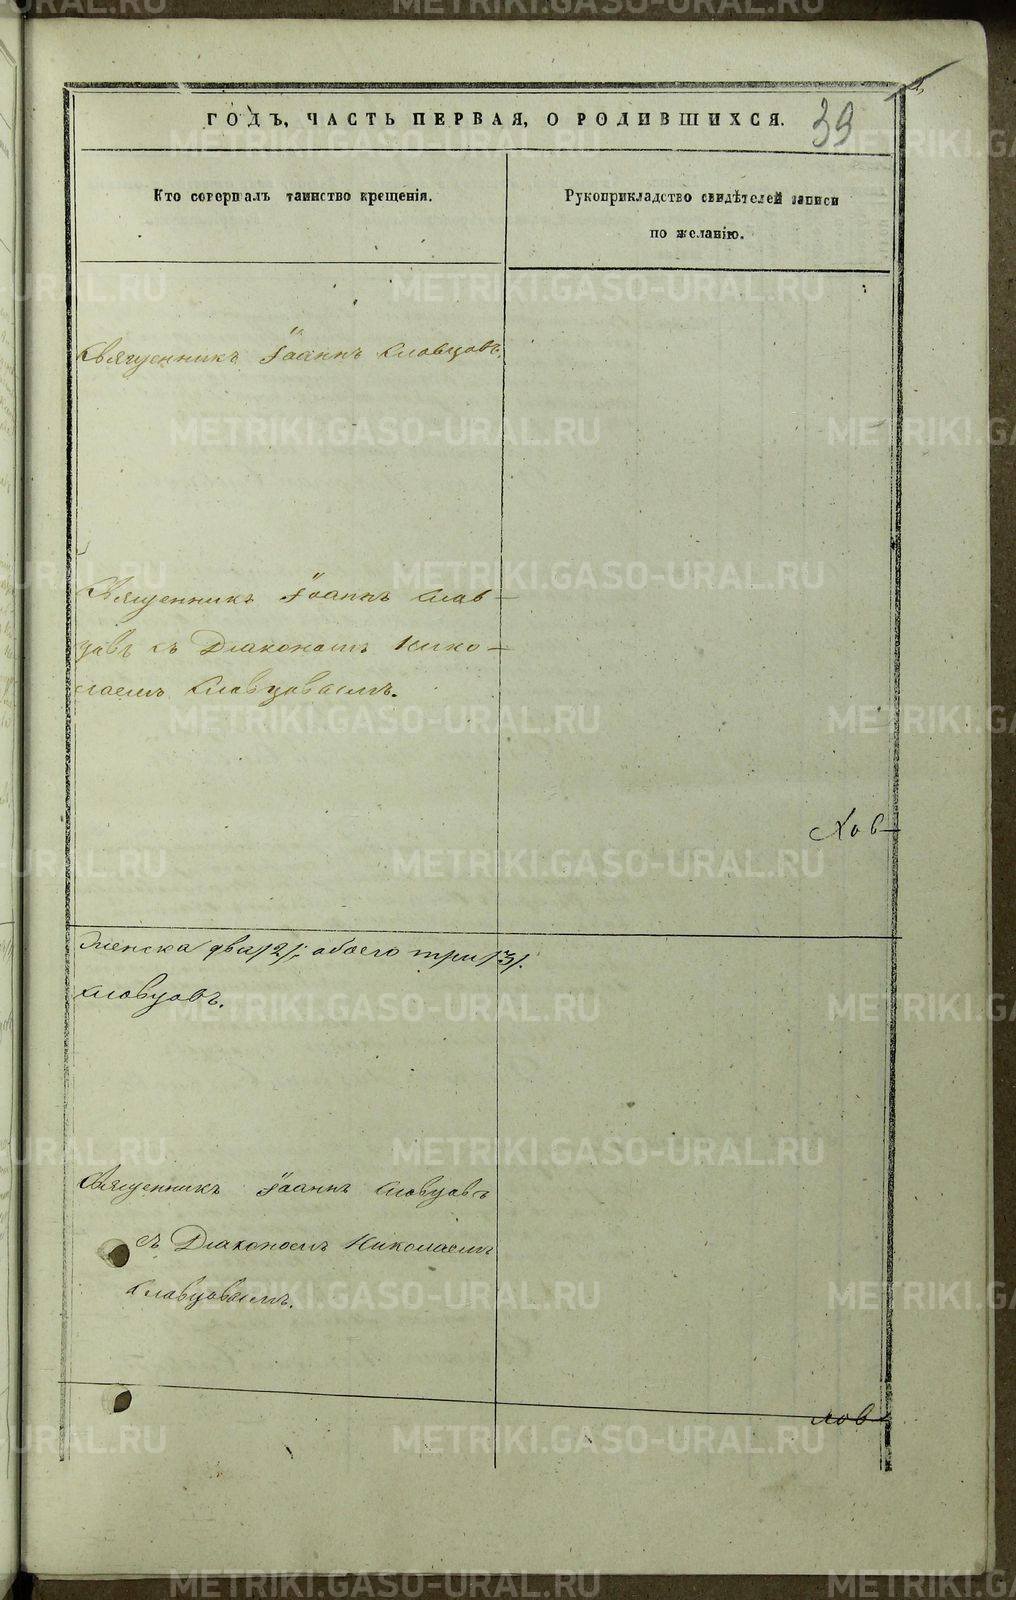 ГОДЪ, ЧАСТЬ ПЕРВАЯ, О РОДИВШИХСЯ.
39
Кто совершалъ таинство крещенія.
Рукоприкладство свидѣтелей записи
по желанію.
Священникъ Іоаннъ Словцовъ.
Священникъ Іоаннъ Слов-
цовъ съ Діакономъ Нико-
лаемъ Словцовымъ.
Женска два /2/; обоего три /3/.
Словцовъ.
Священникъ Іоаннъ Словцовъ
съ Діакономъ Николаемъ
Словцовымъ.
METRIKI.GASO-URAL.RU